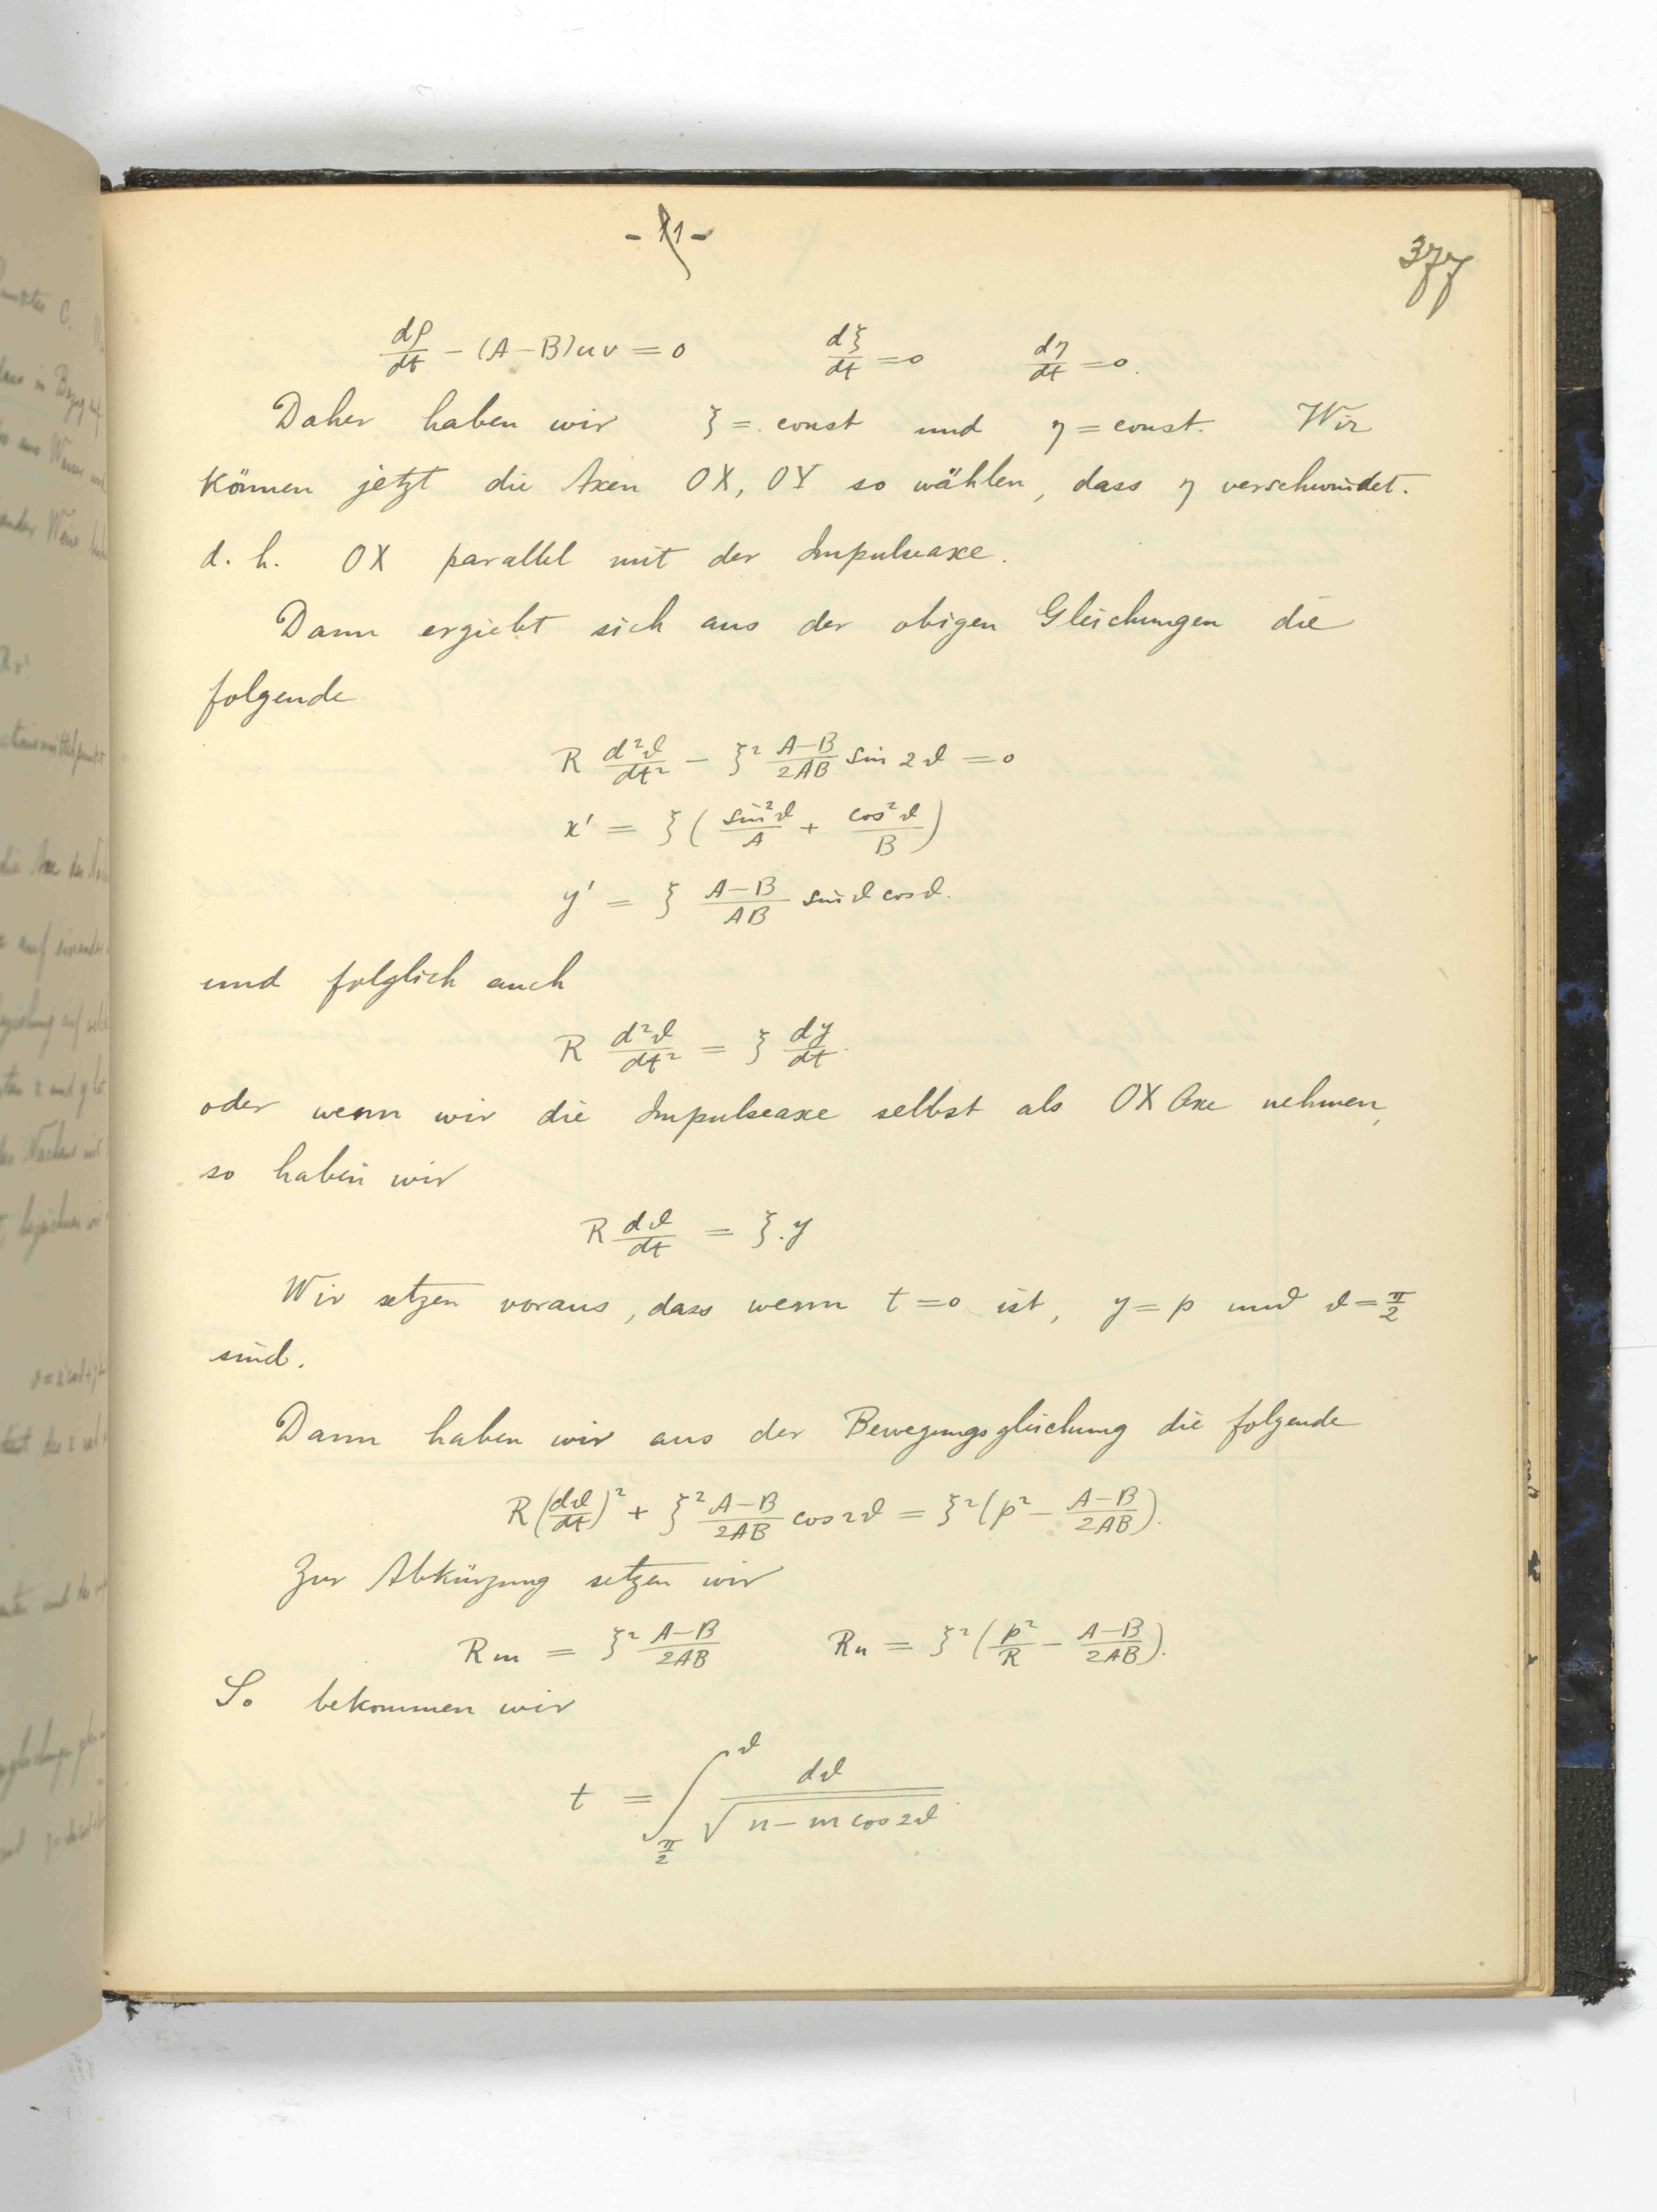 377
dρ/dt - (A-B)uv = 0    dξ/dt = 0    dη/dt = 0.
Daher haben wir ξ = const und η = const. Wir
können jetzt die Axen OX, OY so wählen, dass η verschwindet.
d. h. OX parallel mit der Impulseaxe.
Dann ergiebt sich aus der obigen Gleichungen die
folgende
R d²ϑ/dt² - ξ² (A-B)/2AB sin 2ϑ = 0
x' = ξ ( sin²ϑ/A + cos²ϑ/B )
y' = ξ (A-B)/AB sin ϑ cos ϑ.
und folglich auch
R d²ϑ/dt² = ξ dy/dt.
oder wenn wir die Impulseaxe selbst als OX Axe nehmen,
so haben wir
R dϑ/dt = ξ.y
Wir setzen voraus, dass wenn t=0 ist, y = p und ϑ = π/2
sind.
Dann haben wir aus der Bewegungsgleichung die folgende
R(dϑ/dt)² + ξ² (A-B)/2AB cos 2ϑ = ξ²(p² - (A-B)/2AB).
Zur Abkürzung setzen wir
Rm = ξ² (A-B)/2AB    Rn = ξ²(p²/R - (A-B)/2AB).
So bekommen wir
t = ∫_{π/2}^{ϑ} dϑ/√(n - m cos 2ϑ)